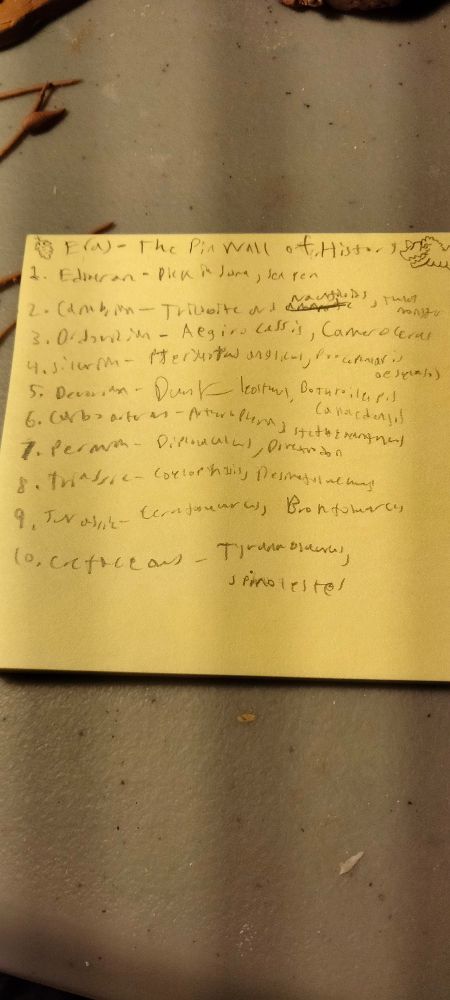 Eras - The Pin Wall of History
1. Ediacran - Dickinsonia, sea pen
2. Cambrian - Trilobite and Nautiloids, Tully monster
3. Ordovician - Aegirocassis, Cameroceras
4. Silurian -
5. Devonian - Dunkleosteus, Bothriolepis
canadensis
6. Carboniferous - Arthropleura, stethacanthus
7. Permian - Diplocaulus, Dimetrodon
8. Triassic - Coelophysis, Desmatosuchus
9. Jurassic - Ceratosaurus, Brontosaurus
10. Cretaceous - Tyrannosaurus,
spinolestes